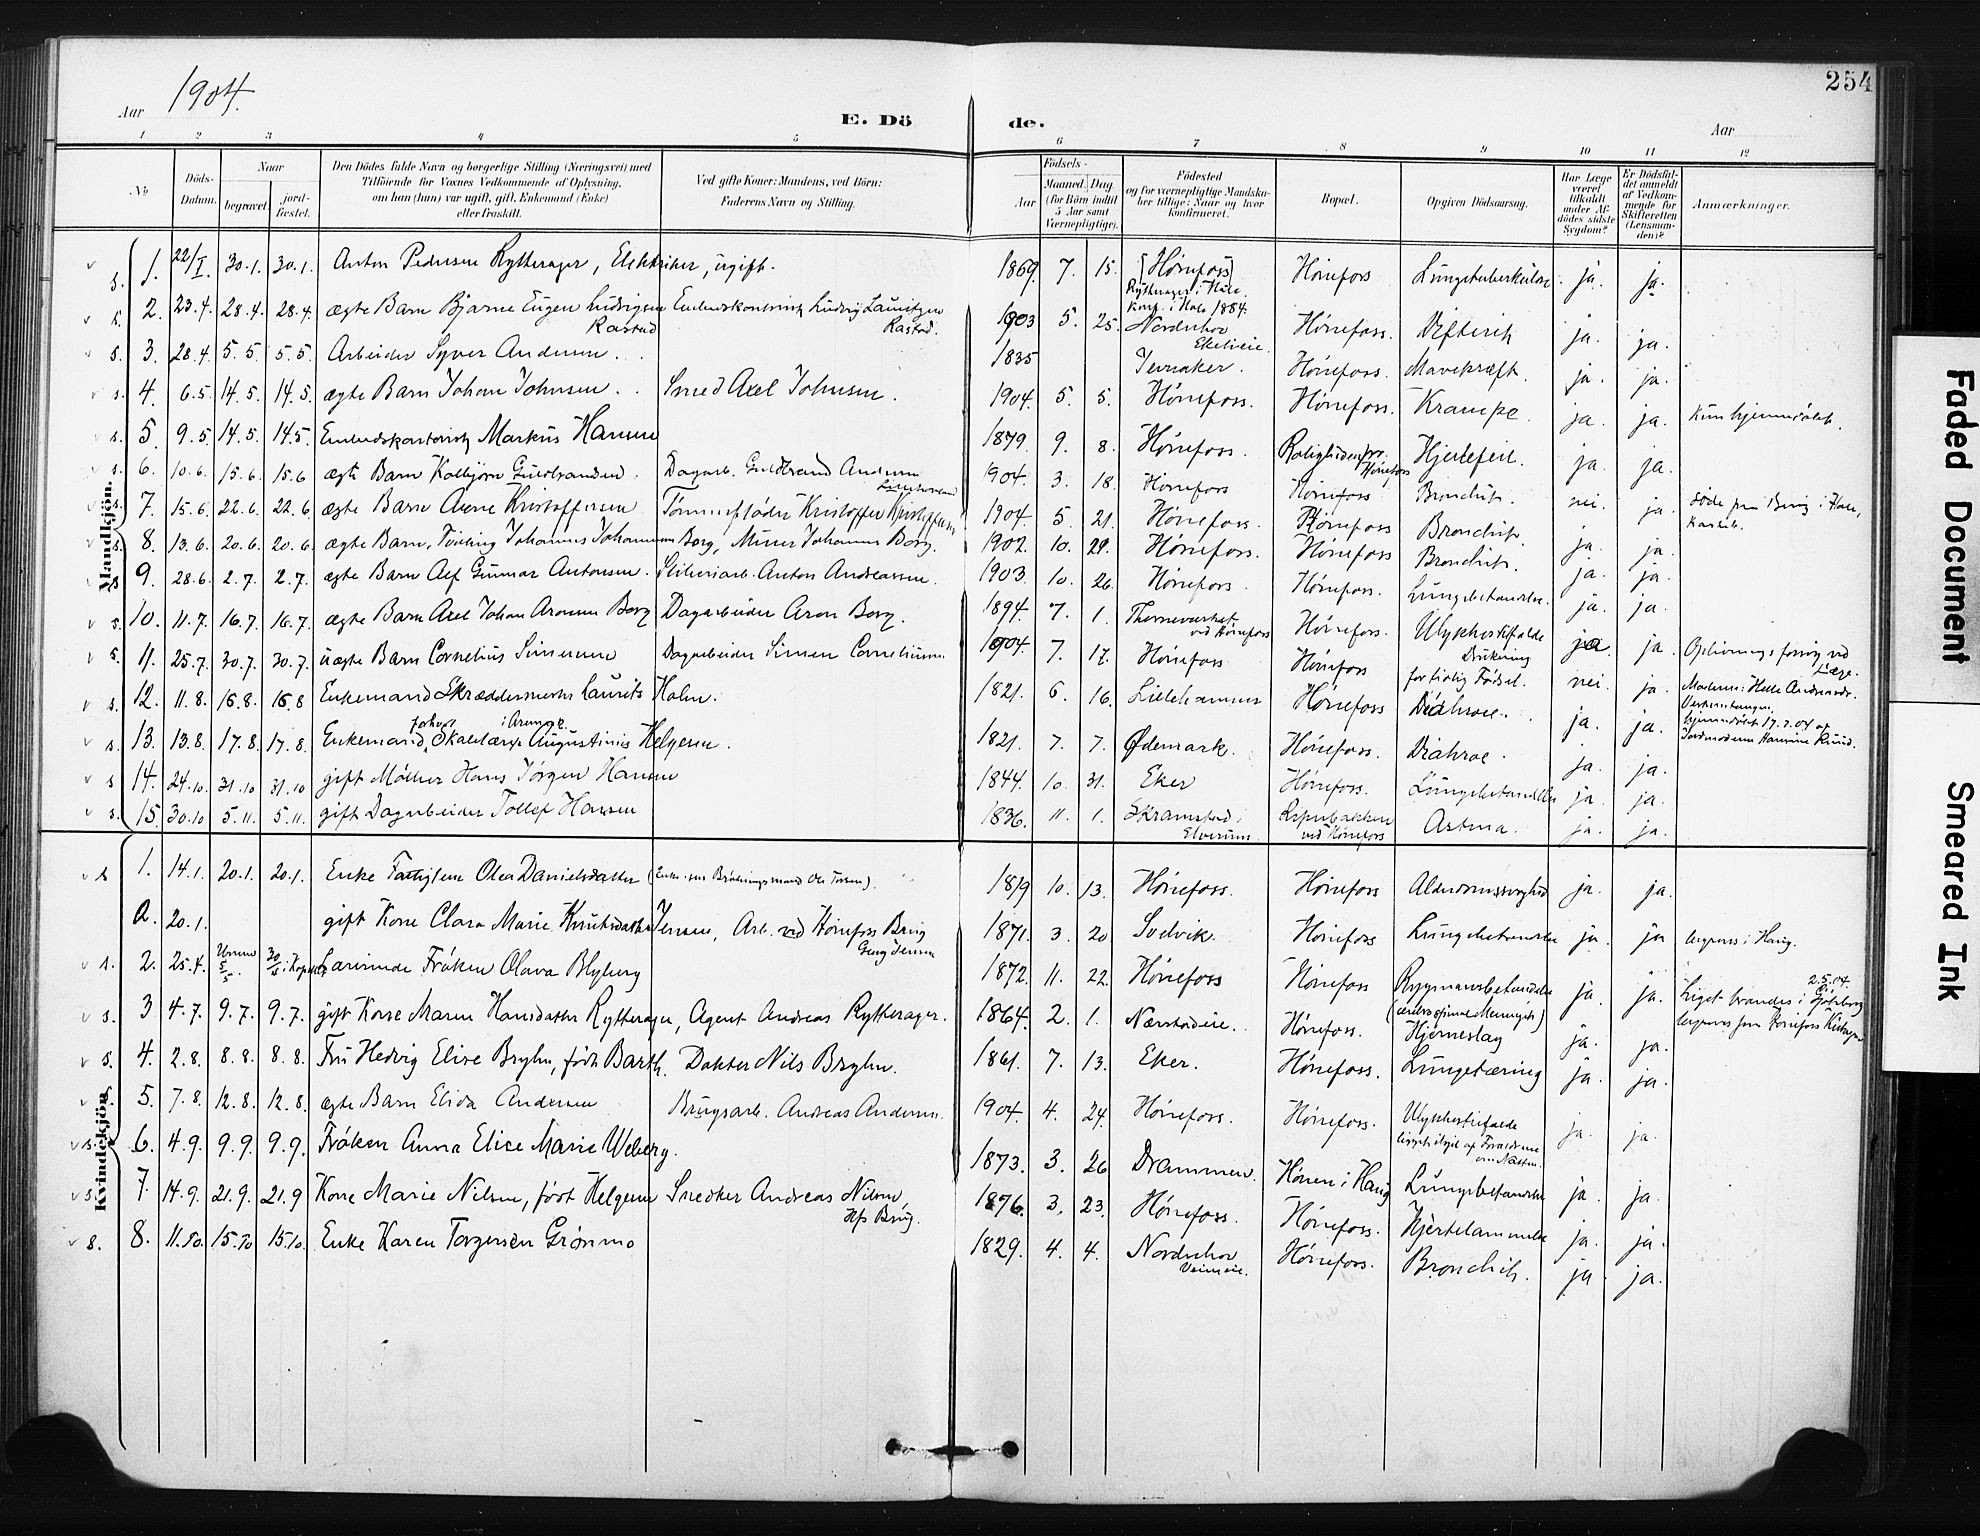 254
Aar 1904.
E. Döde.
Aar
1 2 3 4 5 6 7 8 9 10 11 12
No
Döds-Datum.
Naar
begravet.
jord-fæstet.
Den Dödes fulde Navn og borgerlige Stilling (Næringsvei) med Tilföiende for Voxnes Vedkommende af Oplysning, om han (hun) var ugift, gift, Enkemand (Enke) eller fraskilt.
Ved gifte Koner: Mandens, ved Börn: Faderens Navn og Stilling.
Födsels-
Aar
Maaned. Dag.
(for Börn indtil 5 Aar samt Værnepligtige).
Födested og for værnepligtige Mandskaber tillige: Naar og hvor konfirmeret.
Bopæl.
Opgiven Dödsaarsag.
Har Læge været tilkaldt under Afdödes sidste Sygdom?
Er Dödsfaldet anmeldt af Vedkommende for Skifteretten (Lensmanden)?
Anmærkninger.
Mandkjön.
s. 1. 22/I 30.1. 30.1. Anton Pedersen Rytterager, Elektriker, ugift. 1869. 7. 15. [Hønefoss] Rytterager i Hole Konf. i Hole 1884. Hønefoss Lungetuberkulose ja. ja.
s. 2. 23.4. 28.4. 28.4. ægte Barn Bjarne Eugen Ludvigsen Rastad Ludvig Lauritzen Rastad. 1903 5. 25. Norderhov Hønefoss. Difterit ja. ja.
s. 3. 28.4. 5.5. 5.5. Arbeider Syver Andersen. 1835 Jevnaker. Hønefoss. Mavekræft. ja. ja.
s. 4. 6.5. 14.5. 14.5. ægte Barn Johan Johnsen. Smed Axel Johnsen. 1904. 5. 5. Hønefoss. Hønefoss. Krampe. ja. ja. Kun hjemmedøbt.
s. 5. 9.5. 14.5. 14.5. Markus Hansen 1879. 9. 8. Hønefoss. Hønefoss Hjertefeil. ja. ja.
s. 6. 10.6. 15.6. 15.6 ægte Barn Kolbjørn Guldbrandsen Dagarb. Guldbrand Andersen 1904. 3. 18. Hønefoss Hønefoss Bronchit. nei. ja.
s. 7. 15.6. 22.6. 22.6. ægte Barn Arne Kristoffersen Tømmerfløder Kristoffer Kristoffersen 1904. 5. 21. Hønefoss. Hønefoss Bronchit. ja. ja.
s. 8. 13.6. 20.6. 20.6. ægte Barn, Tvilling Johannes Johannessen Borg, Murer Johannes Borg. 1902. 10. 29. Hønefoss. Hønefoss Bronchit. ja. ja.
s. 9. 28.6. 2.7. 2.7. ægte Barn Alf Gunnar Antonsen. Sliberiarb. Anton Andreassen. 1903. 10. 26. Hønefoss Hønefoss. Lungebetændelse. ja. ja.
s. 10. 11.7. 16.7. 16.7. ægte Barn Axel Johan Aronsen Borg Dagarbeider Aron Borg. 1894. 7. 1. ved Hønefoss Hønefoss. Ulykkestilfælde Drukning ja. ja. Oplivningsforsøg ved Læge.
s. 11. 25.7. 30.7. 30.7. uægte Barn Cornelius Simensen Dagarbeider Simen Corneliussen. 1904. 7. 17. Hønefoss Hønefoss for tidlig Fødsel. nei. ja. hjemmedøbt 17.7.04 af Jordmoderen
s. 12. 11.8. 16.8. 16.8 Enkemand Skræddermester Laurits Holm. 1821. 6. 16. Lillehammer Hønefoss Diahroe. ja. ja.
s. 13. 13.8. 17.8. 17.8. Enkemand, forhen Augustinius Helgesen. 1821. 7. 7. Ødemark. Hønefoss. Diahroe. ja. ja.
s 14. 24.10. 31.10 31.10 gift Møller Hans Jørgen Hansen 1844. 10. 31. Eker Hønefoss. Lungebetændelse ja. ja.
s. 15. 30.10 5.11. 5.11. gift Dagarbeider Tollef Hansen 1836. 11. 1. Skramstad i Elverum. ved Hønefoss Astma. ja. ja.
Kvindekjön.
s 1. 14.1. 20.1. 20.1. Enke Olea Danielsdatter 1819 10. 13. Hønefoss. Hønefoss Alderdomssvaghed ja. ja.
a. 20.1. gift Kone Clara Marie Knutsdatter Jensen, Arb. ved Hønefoss Brug Georg Jensen 1871. 3. 20 Hønefoss Lungebetændelse ja. ja begraves i Haug.
s. 2. 25.4. 5/5 Lærerinde Frøken Olava Blyberg 1872. 11. 22. Hønefoss Hønefoss Rygmarvsbetændelse (cerebrospinal Meningit) ja. ja. Liget brændes i Göteborg 2.5.04.
s. 3 4.7. 9.7. 9.7. gift Kone Maren Hansdatter Rytterager, Agent Andreas Rytterager. 1864. 2. 1. Hønefoss. Hjerneslag ja. ja.
s. 4. 2.8. 8.8. 8.8. Fru Hedvig Elise Bryhn, født Barth. Doktor Nils Bryhn. 1861. 7. 13. Eker. Hønefoss. Lungetæring ja. ja.
s. 5. 7.8. 12.8. 12.8. ægte Barn Elida Andersen Brugsarb. Andreas Andersen. 1904. 4. 24. Hønefoss. Hønefoss. Ulykkestilfælde ja. ja.
s. 6. 4.9. 9.9. 9.9. Frøken Anna Elise Marie Weberg. 1873. 3. 26 Drammen. Hønen i Haug Lungebetændelse ja. ja.
s. 7. 14.9. 21.9. 21.9 Kone Marie Nilsen, født Helgesen Snedker Andreas Nilsen, Hfs Brug. 1876. 3. 23. Hønefoss. Hønefoss. Hjertelammelse ja. ja.
s. 8. 11.10. 15.10 15.10. Enke Karen Torgersen Grønmo 1829. 4. 4. Norderhov Hønefoss. Bronchit. ja. ja.
Faded Document
Smeared Ink